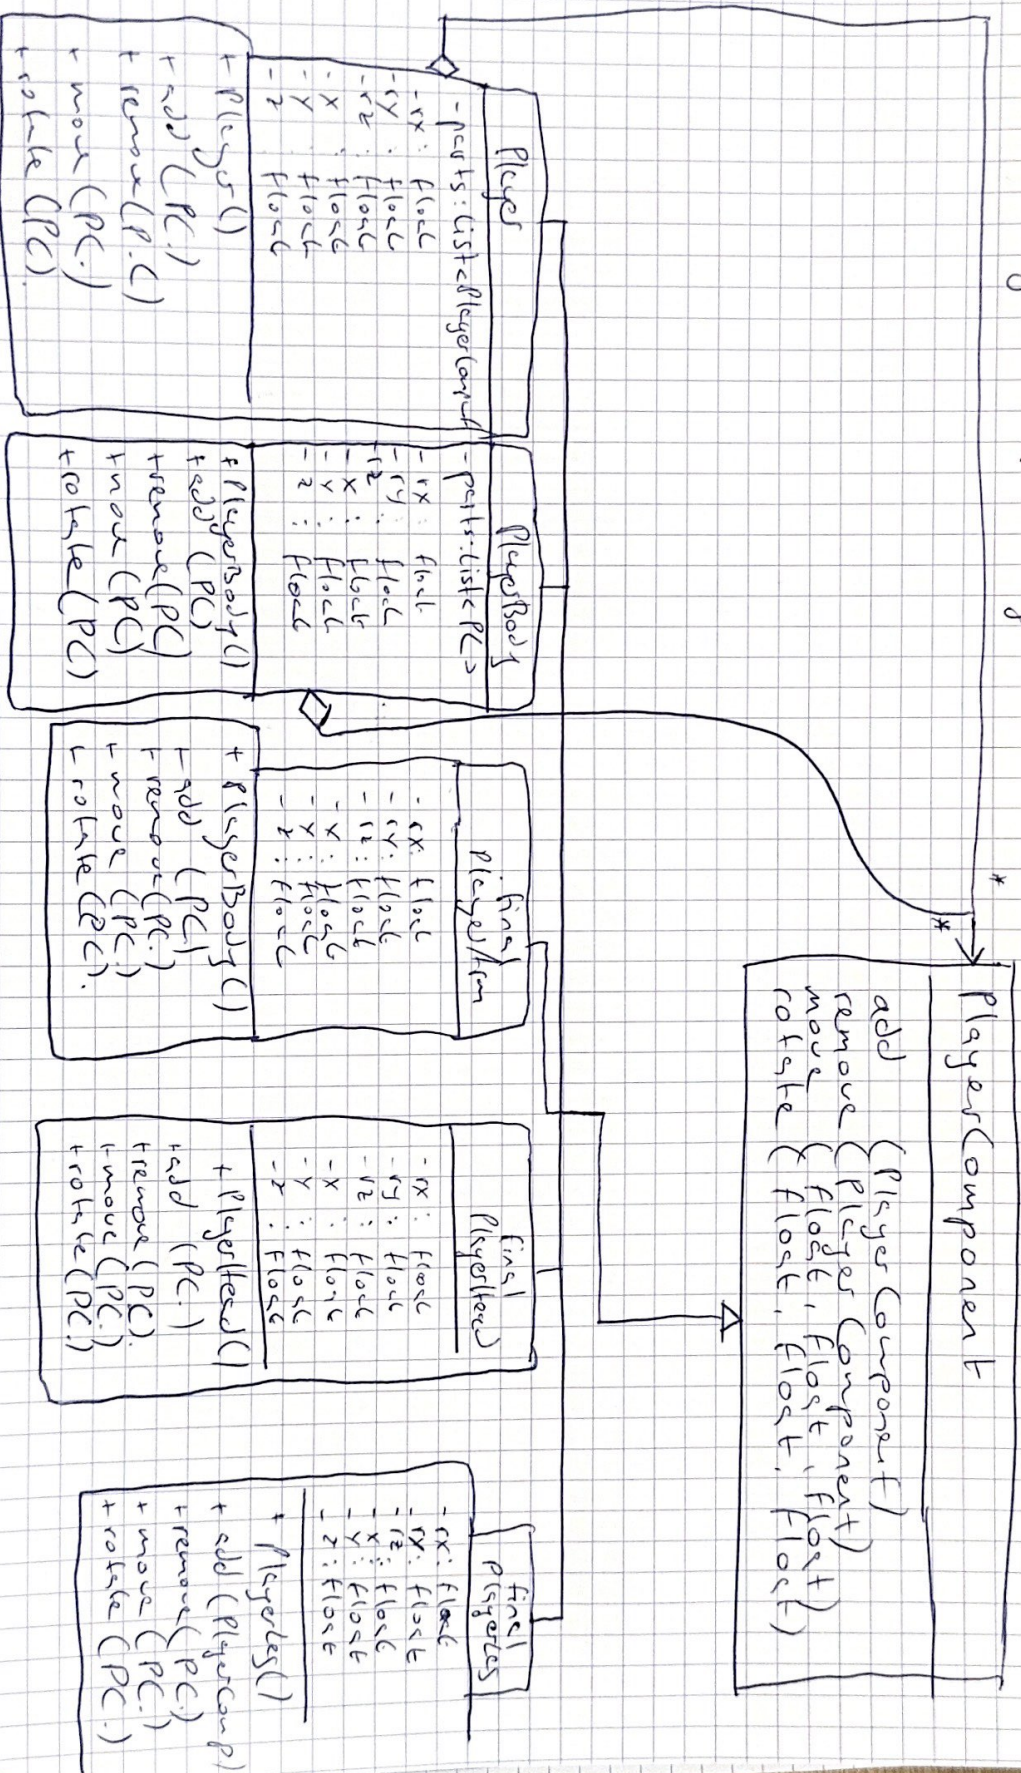 PlayerComponent
add (PlayerComponent)
remove (PlayerComponent)
move (float, float, float)
rotate (float, float, float)
*
*
Player
-parts:List<PlayerComponent
-rx: float
-ry: float
-rz: float
-x : float
-y : float
-z : float
+ Player()
+ add (PC.)
+ remove (P.C)
+ move (PC.)
+ rotate (PC).
PlayerBody
-parts:List<PC>
-rx : float
-ry : float
+rz : float
-x : float
-y : float
-z : float
+PlayerBody()
+add (PC)
+remove (PC)
+move (PC)
+rotate (PC)
final
PlayerArm
-rx: float
-ry: float
-rz: float
-x : float
-y : float
-z : float
+ PlayerBody()
+ add (PC)
+ remove (PC.)
+ move (PC.)
+ rotate (PC).
final
PlayerHead
-rx : float
-ry : float
-rz : float
-x : float
-y : float
-z : float
+ PlayerHead()
+add (PC.)
+remove (PC).
+move (PC.)
+rotate (PC.)
final
PlayerLeg
-rx: float
-rx: float
-rz: float
-x : float
-y : float
-z : float
+ PlayerLeg()
+ add (PlayerComp)
+ remove (PC.)
+ move (PC.)
+ rotate (PC.)